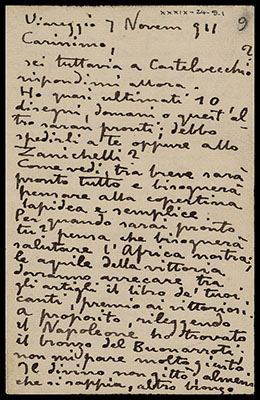 XXXIX-24-9.1
9
Viareggio 7 Novem 911
Carissimo,
sei tuttavia a Castelvecchio?
rispondimi allora.
Ho quasi ultimati 10
disegni, domani o quest'al-
tro saran pronti; debbo
spedirli a te oppure allo
Zanichelli?
Come vedi, tra breve sarà
pronto tutto e bisognerà
pensare alla copertina
lapidea e semplice.
Per quando sarai pronto
tu? pensa che bisognerà
salutare l'Africa nostra;
le aquile della vittoria
dovranno arrecare tra
gli artigli il libro de' tuoi
canti, premio ai vittoriosi.
a proposito, rileggendo
il Napoleone ho trovato
il bronzo del Buonarroti.
non mi pare molto giusto.
Il divino non gittò, almeno
che si sappia, altro bronzo